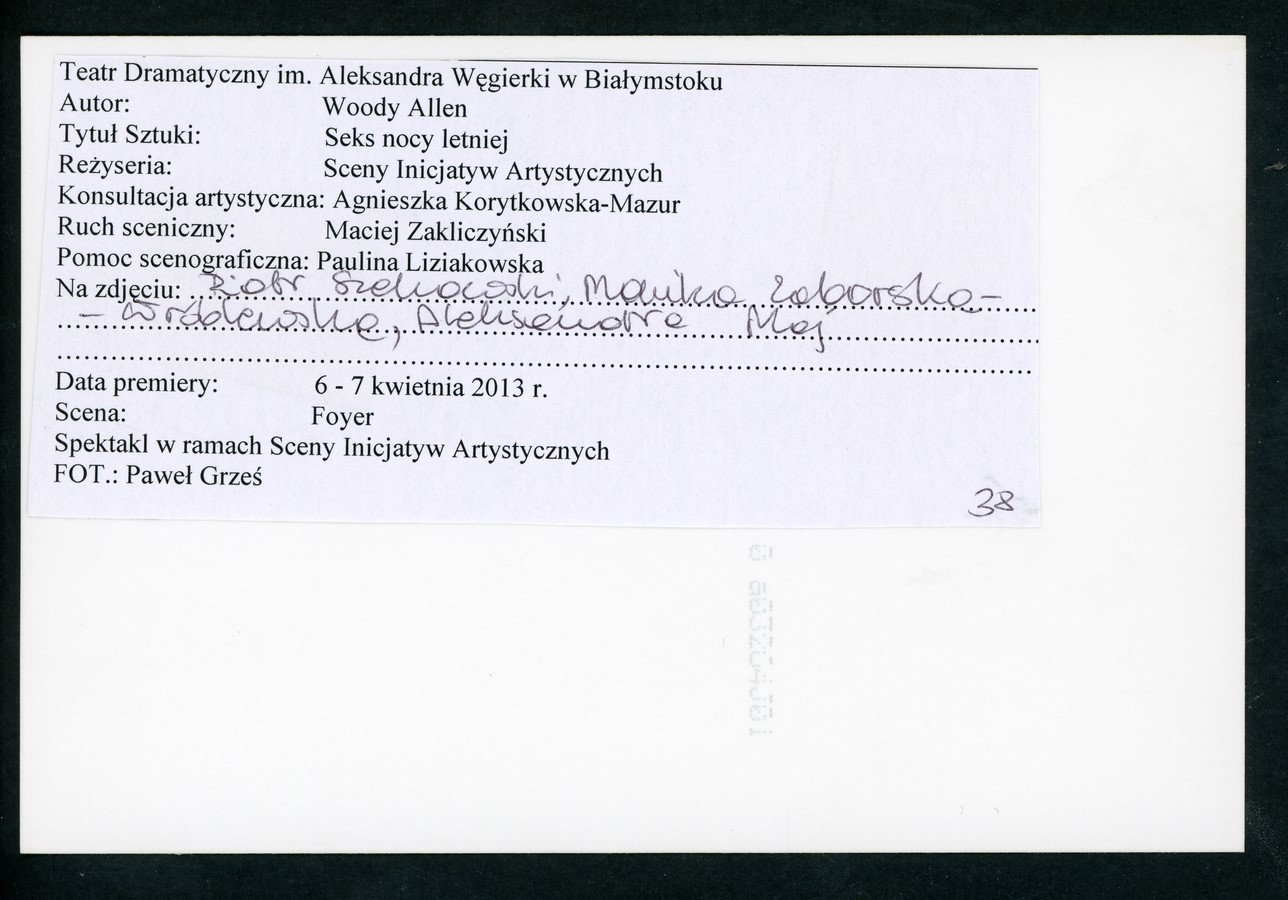 Teatr Dramatyczny im. Aleksandra Węgierki w Białymstoku
Autor: Woody Allen
Tytuł Sztuki: Seks nocy letniej
Reżyseria: Sceny Inicjatyw Artystycznych
Konsultacja artystyczna: Agnieszka Korytkowska-Mazur
Ruch sceniczny: Maciej Zakliczyński
Pomoc scenograficzna: Paulina Liziakowska
Na zdjęciu: Piotr Szekowski, Monika Zaborska-
- Wróblewska, Aleksandra Maj
Data premiery: 6 - 7 kwietnia 2013 r.
Scena: Foyer
Spektakl w ramach Sceny Inicjatyw Artystycznych
FOT.: Paweł Grześ
38